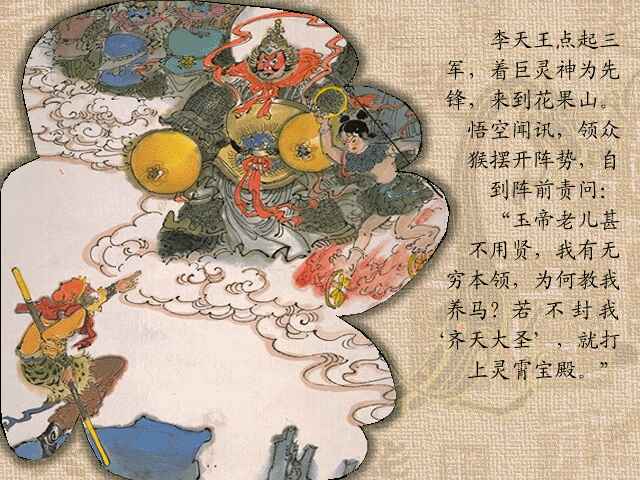 李天王点起三
军，着巨灵神为先
锋，来到花果山。
悟空闻讯，领众
猴摆开阵势，自
到阵前责问：
“玉帝老儿甚
不用贤，我有无
穷本领，为何教我
养马？若不封我
‘齐天大圣’，就打
上灵霄宝殿。”